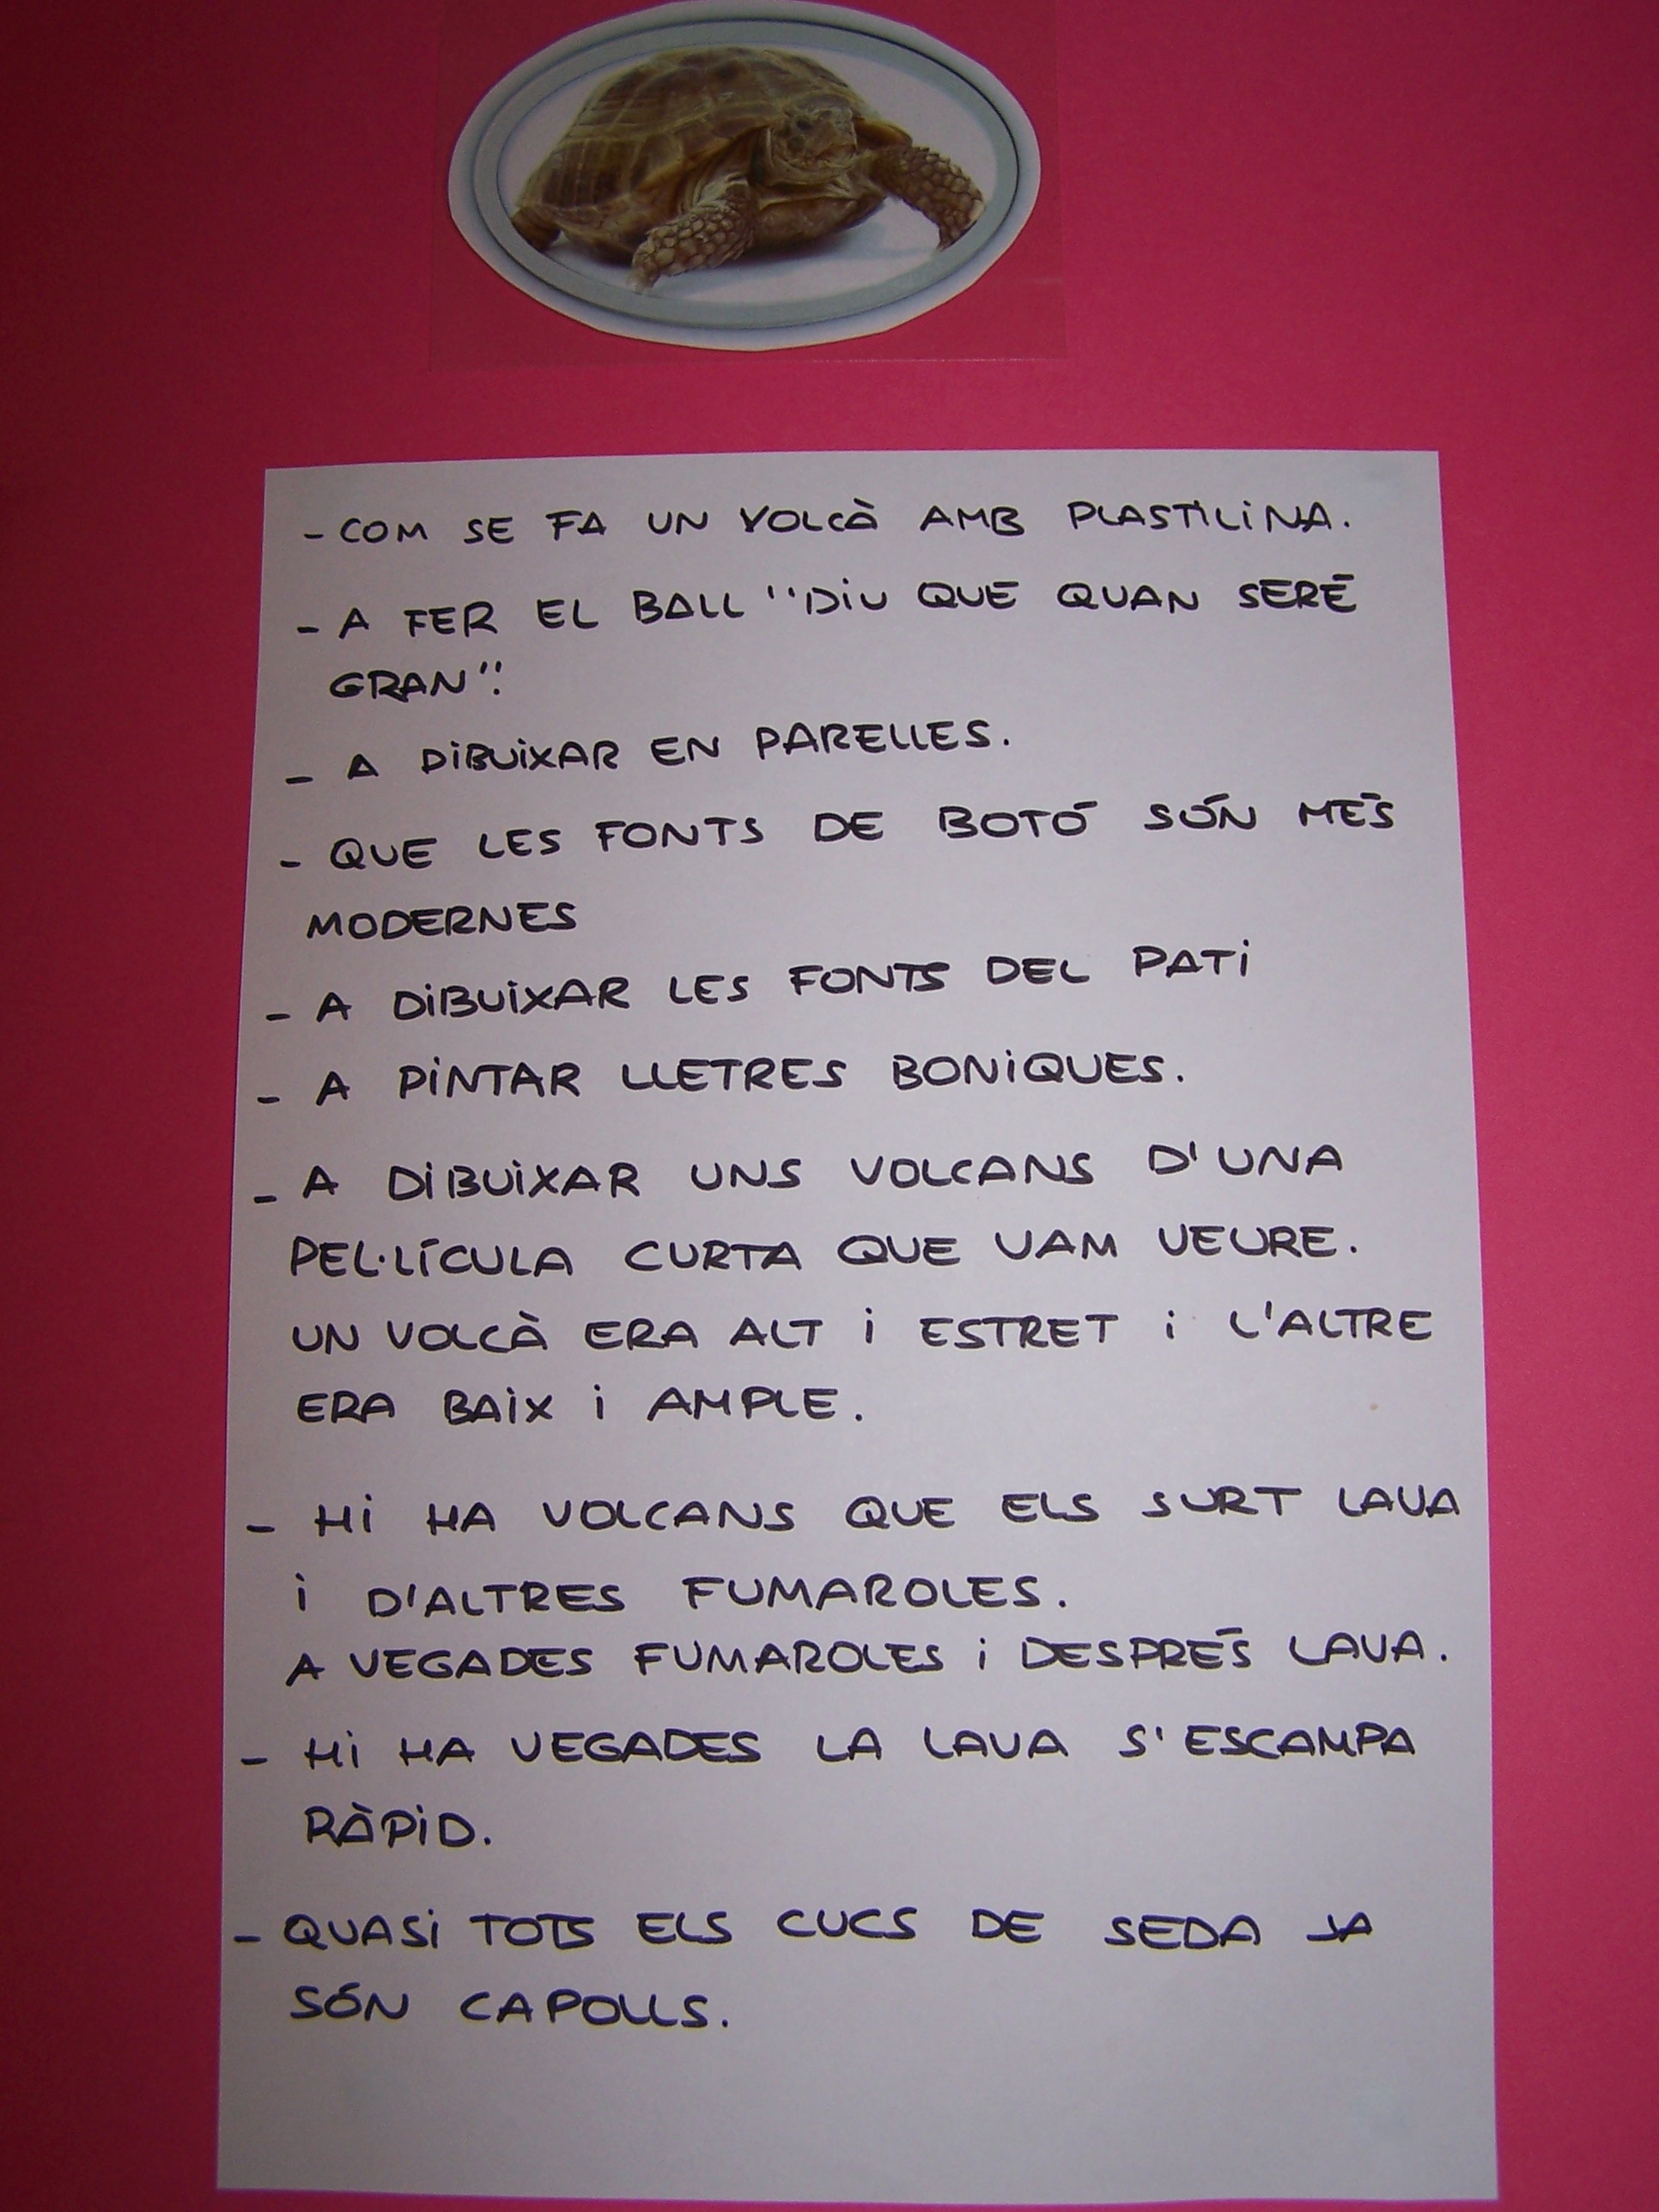 - COM SE FA UN VOLCÀ AMB PLASTILINA.
- A FER EL BALL "DIU QUE QUAN SERÉ
GRAN".
- A DIBUIXAR EN PARELLES.
- QUE LES FONTS DE BOTÓ SÓN MÉS
MODERNES
- A DIBUIXAR LES FONTS DEL PATI
- A PINTAR LLETRES BONIQUES.
- A DIBUIXAR UNS VOLCANS D'UNA
PEL·LÍCULA CURTA QUE VAM VEURE.
UN VOLCÀ ERA ALT I ESTRET I L'ALTRE
ERA BAIX I AMPLE.
- HI HA VOLCANS QUE ELS SURT LAVA
I D'ALTRES FUMAROLES.
A VEGADES FUMAROLES I DESPRÉS LAVA.
- HI HA VEGADES LA LAVA S'ESCAMPA
RÀPID.
- QUASI TOTS ELS CUCS DE SEDA JA
SÓN CAPOLLS.